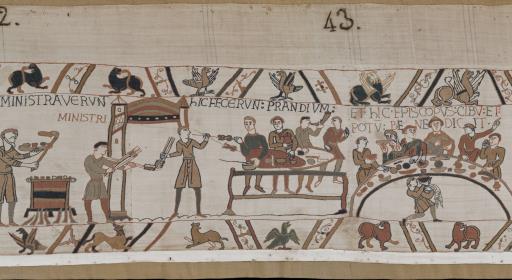 2.
43.
MINISTRAVERVN
MINISTRI
hIC FECERVN: PRANDIVM:
ET·hIC·EPISCOPVS·CIBV:ET·
POTV:BE NEDICIT·